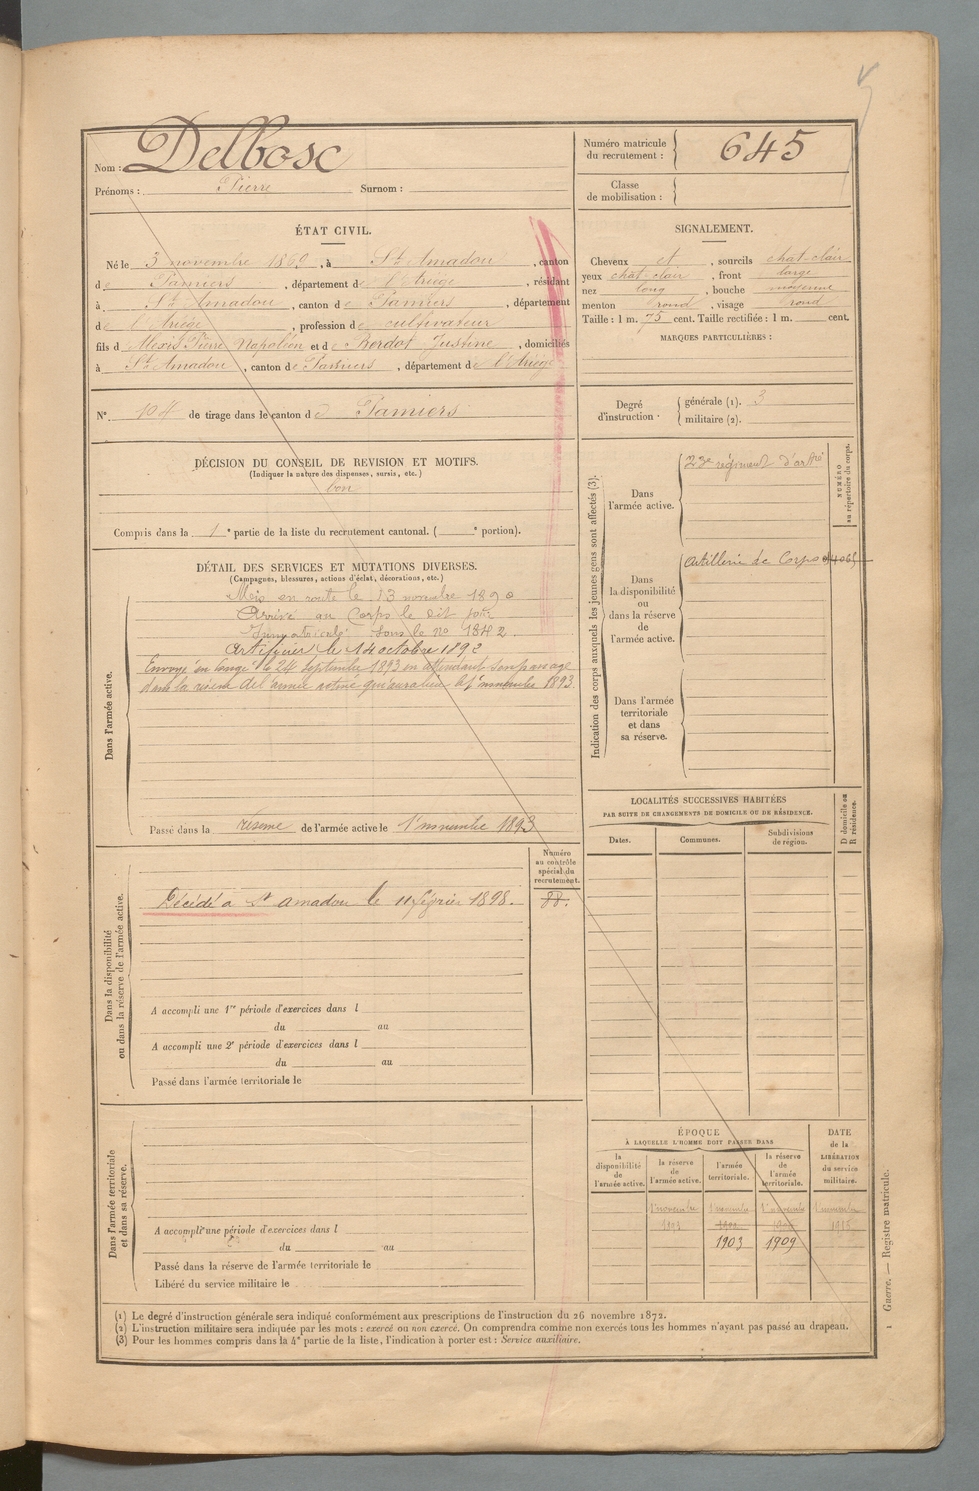 Nom : Delbosc
Prénoms : Pierre Surnom :
Numéro matricule du recrutement : 645
Classe de mobilisation :
ÉTAT CIVIL.
Né le 3 novembre 1869, à St Amadou, canton
de Pamiers, département de l'Ariège, résidant
à St Amadou, canton de Pamiers, département
de l'Ariège, profession de cultivateur
fils d Alexis Pierre Napoléon et de Justine, domiciliés
à St Amadou, canton de Pamiers, département de l'Ariège
N°. 104 de tirage dans le canton de Pamiers
SIGNALEMENT.
Cheveux et, sourcils chat-clair
yeux chat-clair, front large
nez long, bouche moyenne
menton rond, visage rond
Taille : 1 m. 75 cent. Taille rectifiée : 1 m. cent.
MARQUES PARTICULIÈRES :
Degré d'instruction.
générale (1). 3
militaire (2).
DÉCISION DU CONSEIL DE REVISION ET MOTIFS.
(Indiquer la nature des dispenses, sursis, etc.)
bon
Compris dans la 1e partie de la liste du recrutement cantonal. ( e portion).
DÉTAIL DES SERVICES ET MUTATIONS DIVERSES.
(Campagnes, blessures, actions d'éclat, décorations, etc.)
Dans l'armée active.
Mis en route le 13 novembre 1890
Arrivé au Corps le dit jour
Immatriculé sous le no 1842.
Artificier le 14 octobre 1892
Envoyé en congé le 24 Septembre 1893 en attendant son passage
dans la réserve de l'armée active qui aura lieu le 1er novembre 1893.
Passé dans la réserve de l'armée active le 1er novembre 1893
Indication des corps auxquels les jeunes gens sont affectés (3).
NUMÉRO au répertoire du corps.
Dans l'armée active.
23e régiment d'artie
Dans la disponibilité ou dans la réserve de l'armée active.
Artillerie de Corps
Dans l'armée territoriale et dans sa réserve.
LOCALITÉS SUCCESSIVES HABITÉES
PAR SUITE DE CHANGEMENTS DE DOMICILE OU DE RÉSIDENCE.
Dates. Communes. Subdivisions de région. D domicile ou R résidence.
Numéro au contrôle spécial du recrutement.
88.
Dans la disponibilité ou dans la réserve de l'armée active.
Décédé à St Amadou le 11 février 1898.
A accompli une 1re période d'exercices dans l
du au
A accompli une 2e période d'exercices dans l
du au
Passé dans l'armée territoriale le
Dans l'armée territoriale et dans sa réserve.
A accompli une période d'exercices dans l
du au
Passé dans la réserve de l'armée territoriale le
Libéré du service militaire le
ÉPOQUE
À LAQUELLE L'HOMME DOIT PASSER DANS
la disponibilité de l'armée active.
la réserve de l'armée active.
l'armée territoriale.
la réserve de l'armée territoriale.
DATE de la LIBÉRATION du service militaire.
1er novembre 1er novembre 1er novembre 1er novembre
1893
1903 1909
(1) Le degré d'instruction générale sera indiqué conformément aux prescriptions de l'instruction du 26 novembre 1872.
(2) L'instruction militaire sera indiquée par les mots : exercé ou non exercé. On comprendra comme non exercés tous les hommes n'ayant pas passé au drapeau.
(3) Pour les hommes compris dans la 4e partie de la liste, l'indication à porter est : Service auxiliaire.
1 Guerre. — Registre matricule.